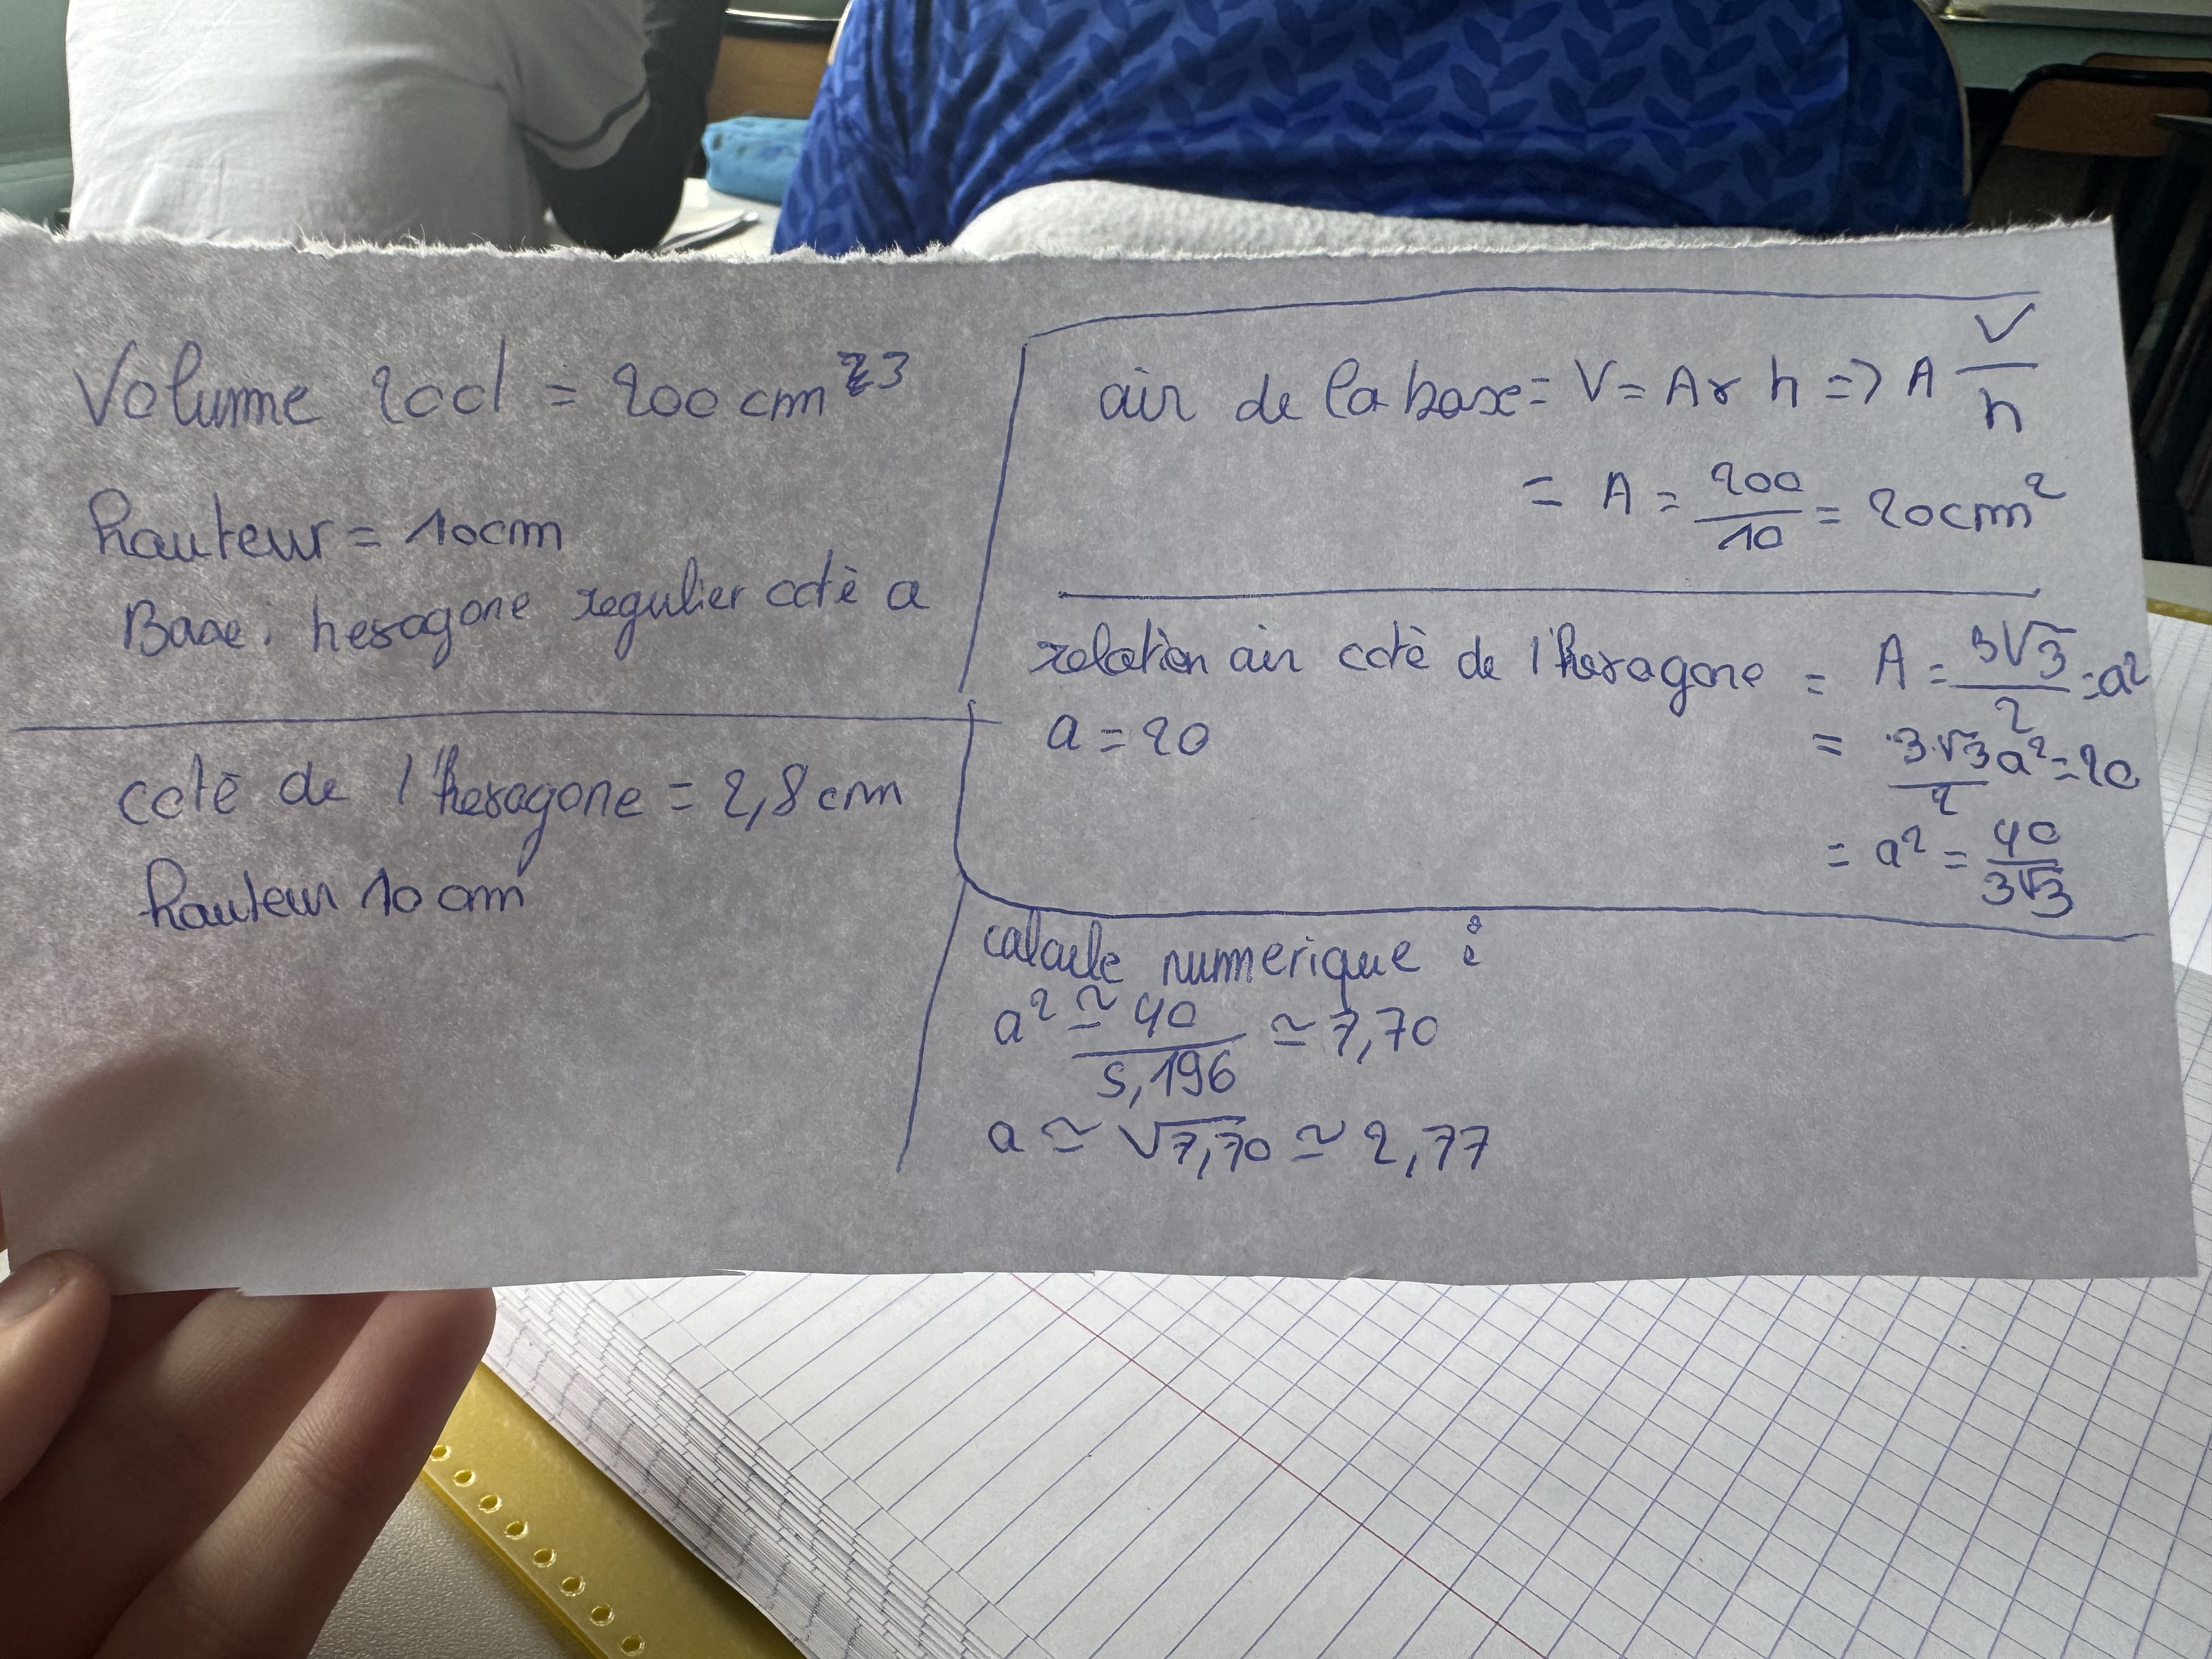 Volume 20cl = 200 cm³
hauteur = 10cm
Base : hexagone regulier coté a
coté de l'hexagone = 2,8 cm
hauteur 10 cm
air de la base = V = A x h => A V/h
= A = 200/10 = 20cm²
relation air coté de l'hexagone = A = 3√3/2 = a²
a = 20
= 3√3/2 a² = 20
= a² = 40/3√3
calcule numerique :
a² ≃ 40/5,196 ≃ 7,70
a ≃ √7,70 ≃ 2,77